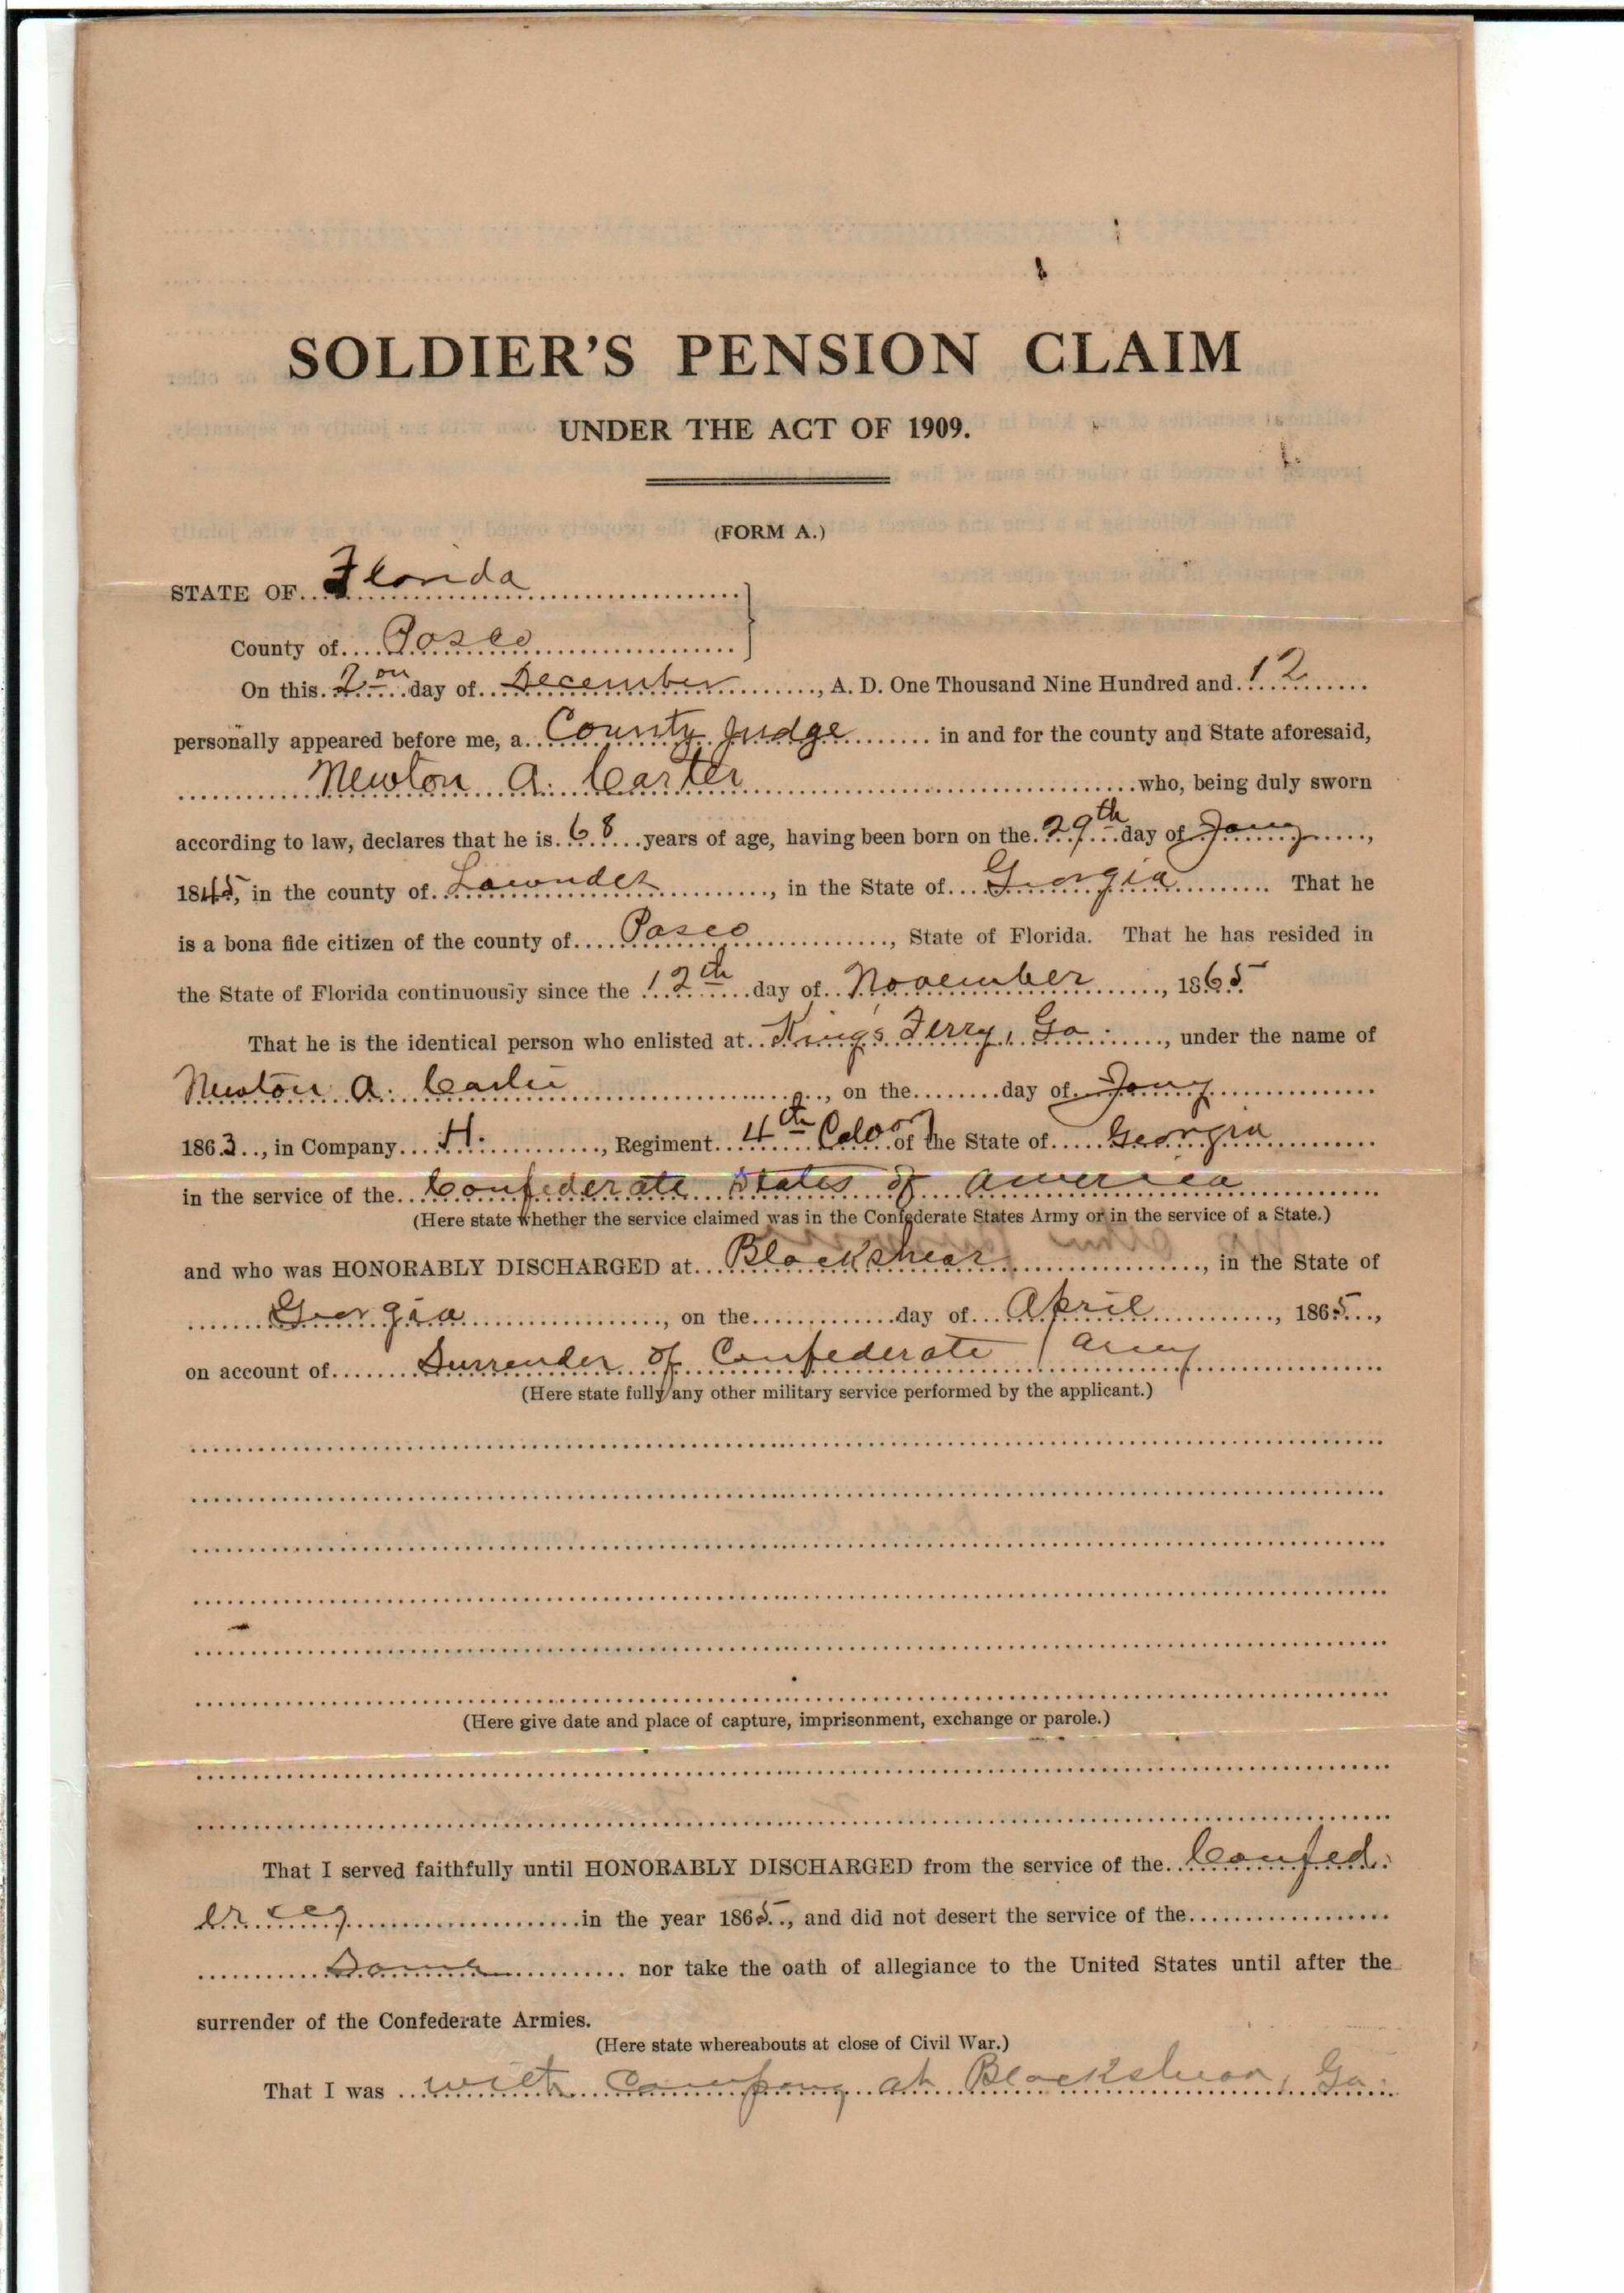 SOLDIER'S PENSION CLAIM
UNDER THE ACT OF 1909.
(FORM A.)
STATE OF Florida
County of Pasco
On this 2nd day of December, A. D. One Thousand Nine Hundred and 12
personally appeared before me, a County Judge in and for the county and State aforesaid,
Newton A. Carter who, being duly sworn
according to law, declares that he is 68 years of age, having been born on the 29th day of Jany,
1845, in the county of Lowndes, in the State of Georgia. That he
is a bona fide citizen of the county of Pasco, State of Florida. That he has resided in
the State of Florida continuously since the 12th day of November, 1865
That he is the identical person who enlisted at King's Ferry, Ga., under the name of
Newton A. Carter, on the day of Jany
1863, in Company H., Regiment 4th Calv of the State of Georgia
in the service of the Confederate States of America
(Here state whether the service claimed was in the Confederate States Army or in the service of a State.)
and who was HONORABLY DISCHARGED at Blackshear, in the State of
Georgia, on the day of April, 1865,
on account of Surrender of Confederate Army
(Here state fully any other military service performed by the applicant.)
(Here give date and place of capture, imprisonment, exchange or parole.)
That I served faithfully until HONORABLY DISCHARGED from the service of the Confed-
eracy in the year 1865, and did not desert the service of the
Same nor take the oath of allegiance to the United States until after the
surrender of the Confederate Armies.
(Here state whereabouts at close of Civil War.)
That I was with Company at Blackshear, Ga.